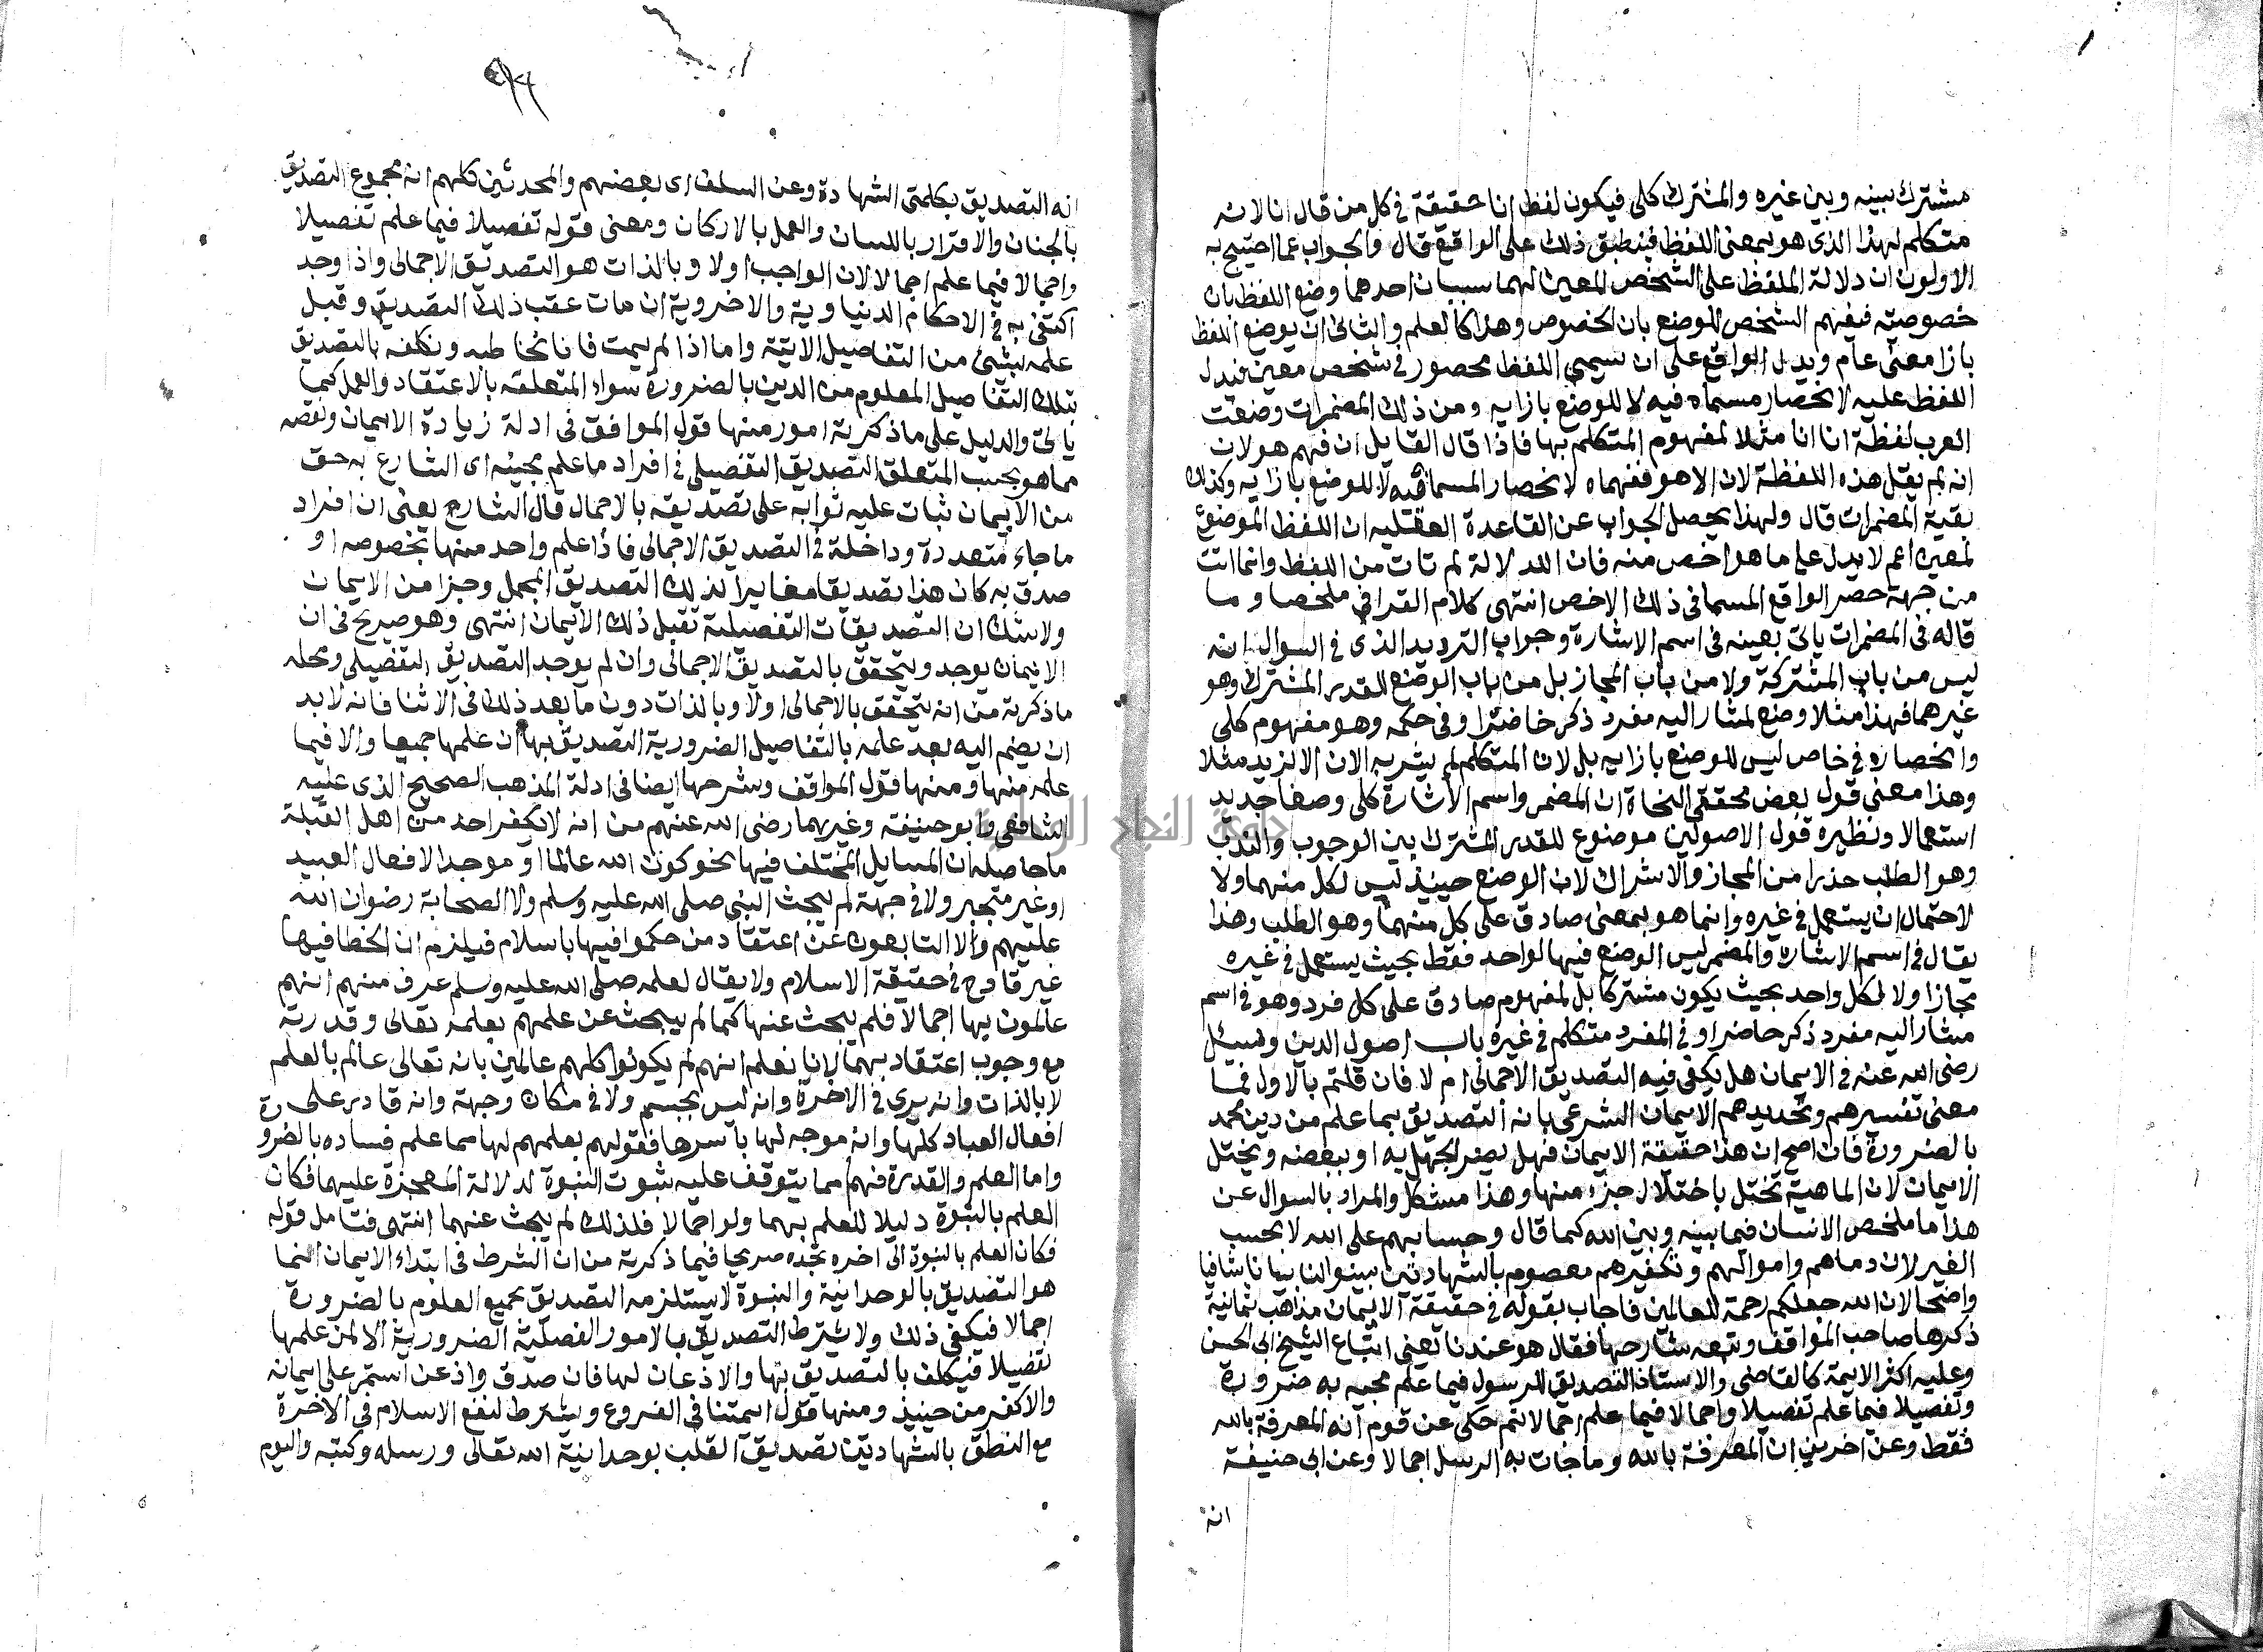 مشترك بينه وبين غيره والمشترك كلى فيكون لفظ انا حقيقة فى كل من قال انا لانه
متكلم لهذا الذى هو بمعنى اللفظ فينطبق ذلك على الواقع قال والجواب عما احتج به
الاولون ان دلالة الملفظ على الشخص المعين لهما سببان احدهما وضع اللفظ بان
خصوصيته فيفهم الشخص للوضع بان الخصوص وهذا كالعلم والثانى ان يوضع اللفظ
بازا معنى عام ويدل الواقع على ان سيمى اللفظ محصور فى شخص معين فيدل
اللفظ عليه لانحصار مسماه فيه لا للوضع بازايه ومن ذلك المضمرات وضعت
العرب لفظة انا انا مثلا لمفهوم المتكلم بها فاذا قال القايل ان فهم هو لان
انه لم يقل هذه اللفظة لان الا هو ففهماه لانحصار المسما فيه لا للوضع بازايه وكذلك
بقية المضمرات قال ولهذا يحصل الجواب عن القاعدة العقليه ان اللفظ الموضوع
لمعين اعم لا يدل على ما هو اخص منه فان الدلالة لم تات من اللفظ وانما اتت
من جهة حصر الواقع المسما فى ذلك الاخص انتهى كلام القرافى ملخصا وما
قاله فى المضمرات ياتى بعينه فى اسم الاشارة وجواب الترديد الذى فى السوال انه
ليس من باب المشتركة ولا من باب المجاز بل من باب الوضع للقدر المشترك وهو
غيرهما فهذا مثلا وضع لمشار اليه مفرد ذكر حاضرا وفى حكمه وهو مفهوم كلى
وانحصاره فى خاص ليس للوضع بازايه بل لان المتكلم لم يشر به الان الا لزيد مثلا
وهذا معنى قول بعض محققى النحاة ان المضمر واسم الاشارة كلى وصفا جديد
استعمالا ونظيره قول الاصولين موضوع للقدر المشترك بين الوجوب والندب
وهو الطلب حذرا من المجاز والاشراك لان الوضع حينيذ ليس لكل منهما ولا
لاحتمال ان يستعمل فى غيره وانما هو بمعنى صادق على كل منهما وهو الطلب وهذا
يقال فى اسم الاشاره والمضمر ليس الوضع فيها لواحد فقط بحيث يستعمل فى غيره
مجازا ولا لمكل واحد بحيث يكون مشتركا بل لمفهوم صادق على كل فرد وهو فى اسم
مشار اليه مفرد ذكر حاضر او فى المفرد متكلم فى غيره باب اصول الدين وسيئل
رضى الله عنه فى الايمان هل يكفى فيه التصديق الاجمالى ام لا فان قلتم بالاول فما
معنى تفسيرهم وتحديدهم الايمان الشرعى بانه التصديق بما علم من دين محمد
بالضرورة فان اصح ان هذا حقيقة الايمان فهل يضر الجهل به او ببعضه ويختل
الايمان لان الماهية تختل باختلال جزء منها وهذا مشكل والمراد بالسوال عن
هذا ما ملخص الانسان فيما بينه وبين الله كما قال وحسابهم على الله لا بحسب
الغير لان دماهم واموالهم وتكفيرهم معصوم بالشهادتين بينوا لنا بيانا شافيا
واضحا لان الله جعلكم رحمة للعالمين فاجاب بقوله فى حقيقة الايمان مذاهب ثمانية
ذكرها صاحب المواقف وتبعه شارحها فقال هو عندنا يعنى اتباع الشيخ ابى الحسن
وعليه اكثر الايمة كالقاضى والاستاذ التصديق للرسول فيما علم مجيه به ضرورة
وتفصيلا فيما علم تفصيلا واجمالا فيما علم اجمالا ثم حكى عن قوم انه المعرفة بالله
فقط وعن اخرين ان المعرفة بالله وما جات به الرسل اجمالا وعن ابى حنيفة
انه
انه التصديق بكلمتى الشهادة وعن السلف اى بعضهم والمحدثين كلهم انه مجموع التصديق
بالجنان والاقرار باللسان والعمل بالاركان ومعنى قوله تفصيلا فيما علم تفصيلا
واجمالا فيما علم اجمالا لان الواجب اولا وبالذات هو التصديق الاجمالى واذا وجد
اكتفى به فى الاحكام الدنياوية والاخروية ان مات عقب ذلك التصديق وقبل
علمه بشئ من التفاصيل الاتية واما اذا لم يمت فانا نخاطبه ونكلفه بالتصديق
بتلك التفاصيل المعلوم من الدين بالضرورة سواء المتعلقه بالاعتقاد والعمل كما
ياتى والدليل على ما ذكرته امور منها قول الموافق فى ادلة زيادة الايمان ونقصه
مما هو بحسب المتعلق التصديق التفصيلى فى افراد ما علم مجيئه اى الشارع به حق
من الايمان ثبات عليه ثوابه على تصديقه بالاجمال قال الشارح يعنى ان افراد
ما جاء متعددة وداخلة فى التصديق الاجمالى فاذا علم واحد منها بخصوصه او
صدق به كان هذا تصديقا مغايرا لذلك التصديق المجمل وجزا من الايمان
ولا شك ان التصديقات التفصيلية تقبل ذلك الايمان انتهى وهو صريح فى ان
الايمان يوجد ويتحقق بالتصديق الاجمالى وان لم يوجد التصديق التفصيلى ومحله
ما ذكرته من انه يتحقق بالاجمالى اولا وبالذات دون ما بعد ذلك فى الاثنا فانه لا بد
ان يضم اليه بعد علمه بالتفاصيل الضرورية التصديق بها ان علمها جميعا والا فيما
علمه منها ومنها قول المواقف وشرحها ايضا فى ادلة المذهب الصحيح الذى عليه
الشافعى وابو حنيفة وغيرهما رضى الله عنهم من انه لا نكفر احد من اهل القبلة
ما حاصله ان المسايل المختلف فيها نحو كون الله عالما او موجدا لافعال العبيد
او غير متحيز ولا فى جهة لم يبحث النبى صلى الله عليه وسلم ولا الصحابة رضوان الله
عليهم ولا التابعون عن اعتقاد من حكموا فيها باسلام فيلزم ان الخطا فيها
غير قادح فى حقيقة الاسلام ولا يقال لعلمه صلى الله عليه وسلم عرف منهم انهم
عالمون بها اجمالا فلم يبحث عنها كما لم يبحث عن علمهم بعلمه تعالى وقدرته
مع وجوب اعتقاد بهما لانا نعلم انهم لم يكونوا كلهم عالمين بانه تعالى عالم بالعلم
لا بالذات وانه يرى فى الاخرة وانه ليس بجسم ولا فى مكان وجهة وانه قادر على رة
افعال العباد كلها وانه موجه لها باسرها فقولهم بعلمهم لها مما علم فساده بالضرو
واما العلم والقدرة فهم مما يتوقف عليه ثبوت النبوة لدلالة المعجزة عليهما فكان
العلم بالنبوة دليلا للعلم بهما ولو اجمالا فلذلك لم يبحث عنهما انتهى فتامل قوله
فكان العلم بالنبوة الى اخره تجده صريحا فيما ذكرته من ان الشرط فى ابتداء الايمان انما
هو التصديق بالوحدانية والنبوة لا يستلزمه التصديق بجميع العلوم بالضرورة
اجمالا فيكفى ذلك ولا يشترط التصديق بالامور الفصلية الضرورية الا لمن علمها
تفصيلا فيكلف بالتصديق بها والاذعان لها فان صدق واذعن استمر على ايمانه
والا كفر من حينيذ ومنها قول ايمتنا فى الفروع ويشترط لنفع الاسلام فى الاخرة
مع النطق بالشهادتين تصديق القلب بوحدانية الله تعالى ورسله وكتبه واليوم